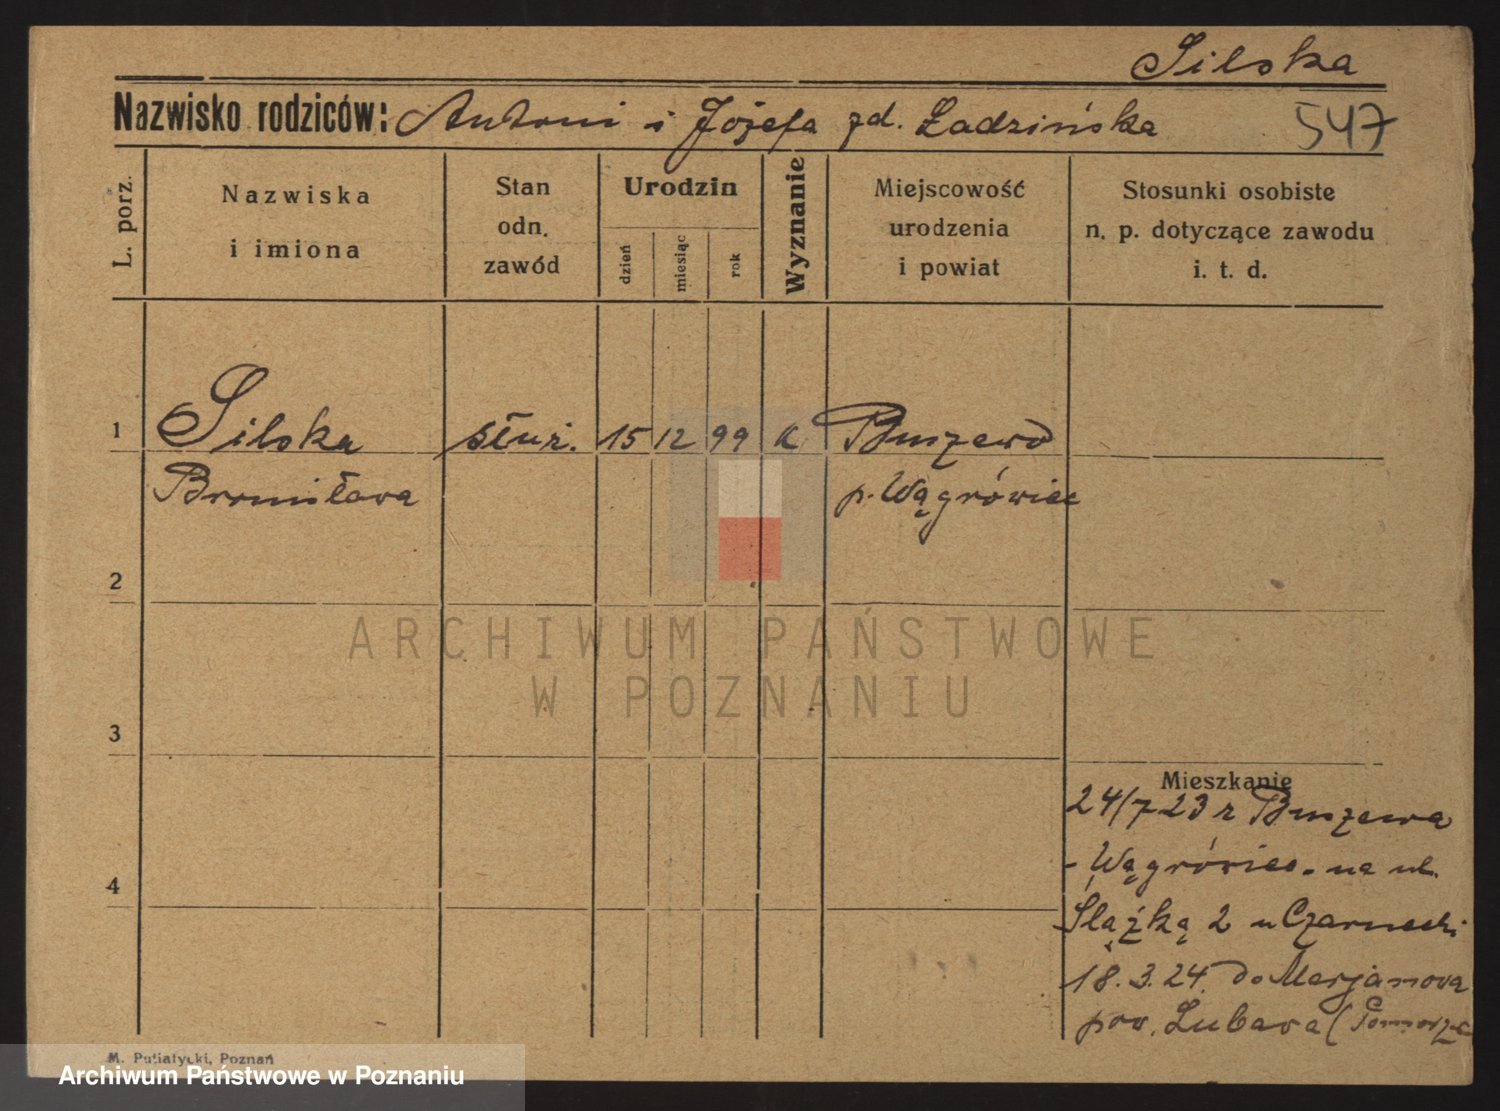 Silska
Nazwisko rodziców: Antoni i Józefa zd. Ladzińska 547
L. porz.
Nazwiska
i imiona
Stan
odn.
zawód
Urodzin
dzień
miesiąc
rok
Wyznanie
Miejscowość
urodzenia
i powiat
Stosunki osobiste
n. p. dotyczące zawodu
i. t. d.
1 Silska służ. 15 12 99 k Buszewo
Bronisława p. Wągrówiec
2
3
4
Mieszkanie
24/7 23 z Buszewa
- Wągrówiec - na ul.
Śląską 2 u Czarnecki
18.3.24. do Marjanowa
pow. Lubawa (Pomorze
M. Putiatycki, Poznań
ARCHIWUM PAŃSTWOWE
W POZNANIU
Archiwum Państwowe w Poznaniu